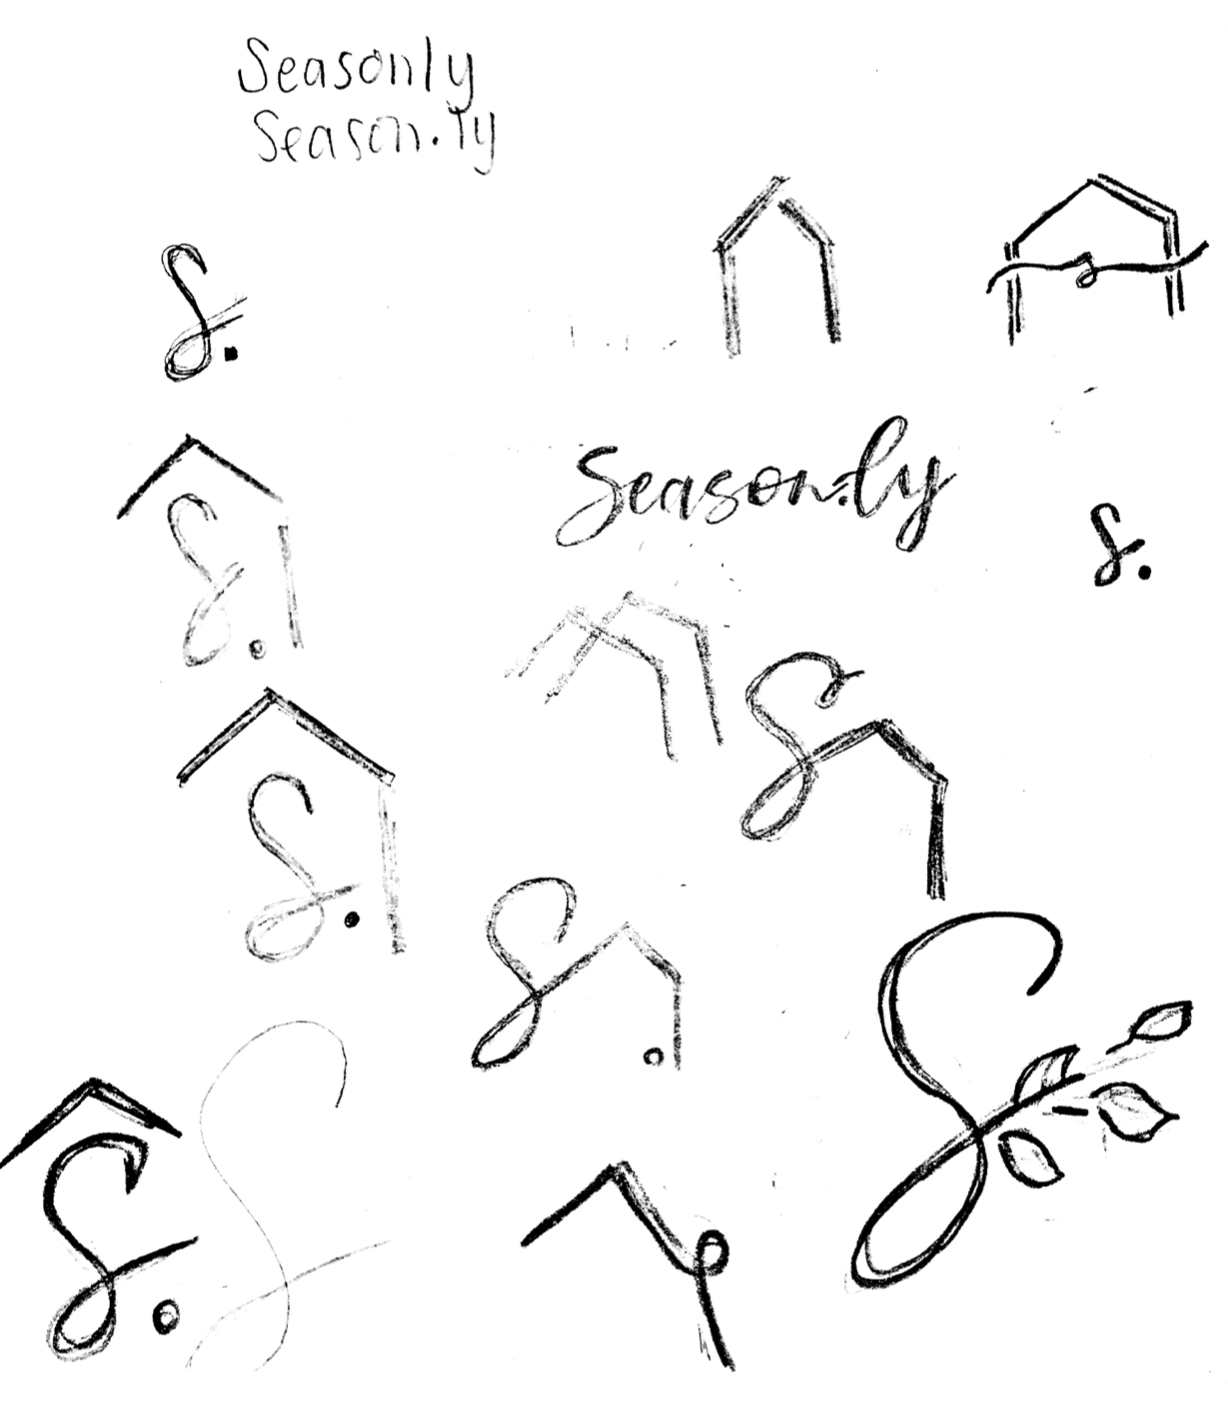 Seasonly
Season.ly
S.
Season.ly
S.
S.
S.
S
S.
S
S.
S